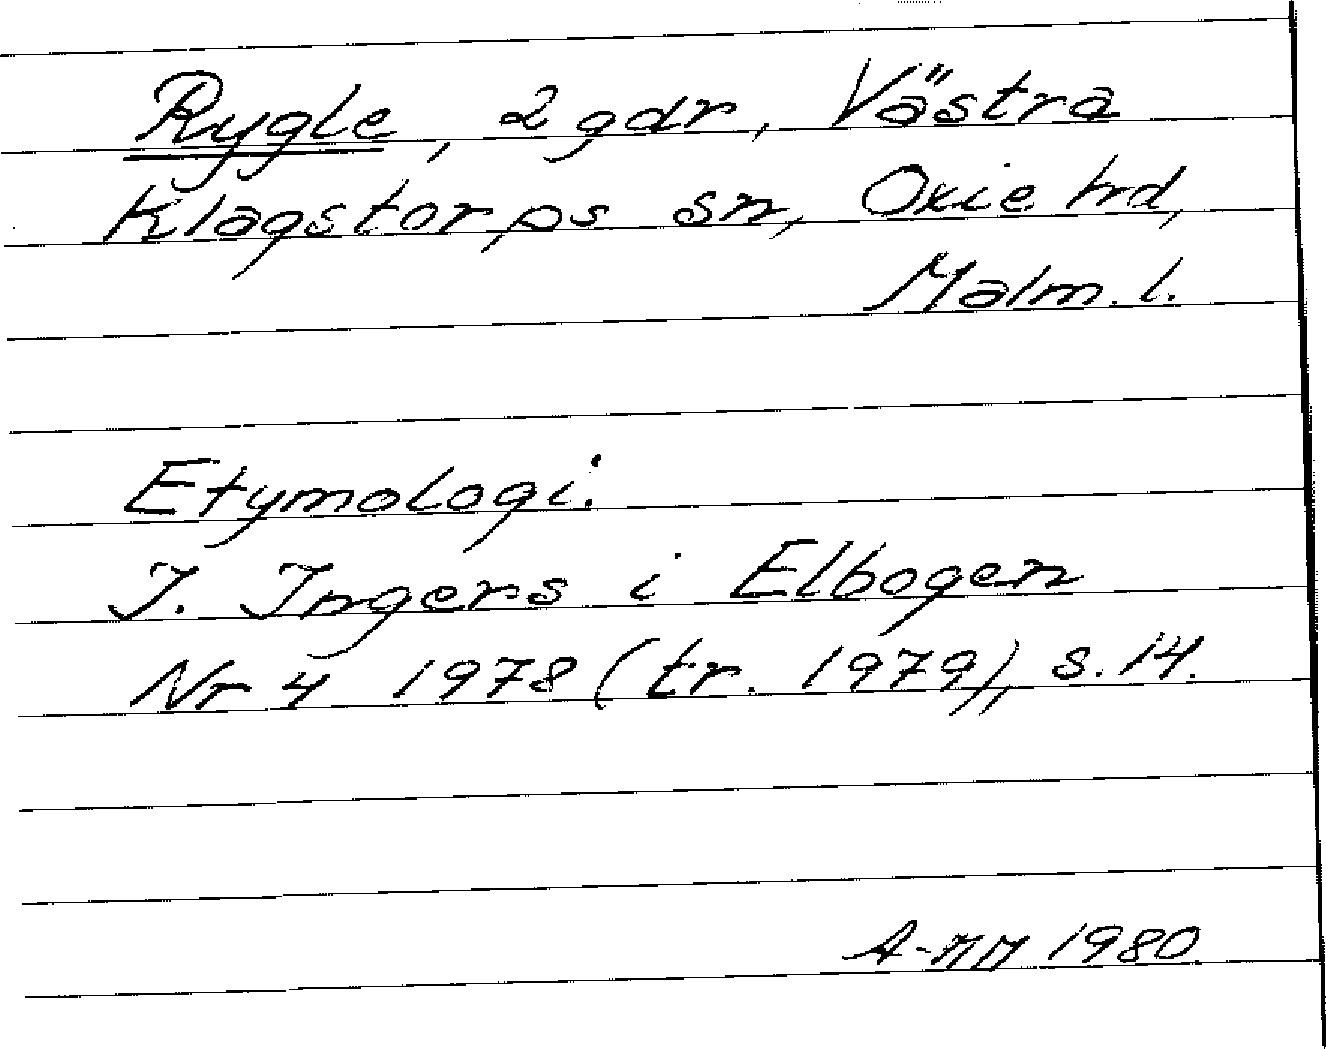 Rygle, 2 gdr, Västra
Klagstorps sn, Oxie hd,
Malm. l.
Etymologi.
I. Ingers i Elbogen
Nr 4 1978 (tr. 1979), s. 14.
1980